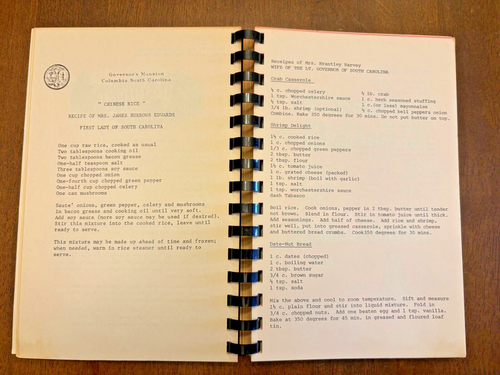 Governor's Mansion
Columbia, South Carolina
" CHINESE RICE "
RECIPE OF MRS. JAMES BURROWS EDWARDS
FIRST LADY OF SOUTH CAROLINA
One cup raw rice, cooked as usual
Two tablespoons cooking oil
Two tablespoons bacon grease
One-half teaspoon salt
Three tablespoons soy sauce
One cup chopped onion
One-fourth cup chopped green pepper
One-half cup chopped celery
One can mushrooms
Saute' onions, green pepper, celery and mushrooms
in bacon grease and cooking oil until very soft.
Add soy sauce (more soy sauce may be used if desired).
Stir this mixture into the cooked rice, leave until
ready to serve.
This mixture may be made up ahead of time and frozen;
when needed, warm in rice steamer until ready to
serve.
Receipes of Mrs. Brantley Harvey
WIFE OF THE LT. GOVERNOR OF SOUTH CAROLINA
Crab Casserole
½ c. chopped celery ½ lb. crab
1 tsp. Worchestershire sauce 1 c. herb seasoned stuffing
½ tsp. salt 1 c. (or less) mayonnaise
3/4 lb. shrimp (optional) ½ c. chopped bell peppers onion
Combine. Bake 350 degrees for 30 mins. Do not put butter on top.
Shrimp Delight
1½ c. cooked rice
1 c. chopped onions
1/3 c. chopped green peppers
2 tbsp. butter
2 tbsp. flour
1½ c. tomato juice
1 c. grated cheese (packed)
1 lb. shrimp (boil with garlic)
1 tsp. salt
1 tsp. worchestershire sauce
dash Tabasco
Boil rice. Cook onions, pepper in 2 tbsp. butter until tender
not brown. Blend in flour. Stir in tomato juice until thick.
Add seasonings. Add half of cheese. Add rice and shrimp,
stir well, put into greased casserole, sprinkle with cheese
and buttered bread crumbs. Cook350 degrees for 30 mins.
Date-Nut Bread
1 c. dates (chopped)
1 c. boiling water
2 tbsp. butter
3/4 c. brown sugar
½ tsp. salt
1 tsp. soda
Mix the above and cool to room temperature. Sift and measure
1½ c. plain flour and stir into liquid mixture. Fold in
3/4 c. chopped nuts. Add one beaten egg and 1 tsp. vanilla.
Bake at 350 degrees for 45 min. in greased and floured loaf
tin.